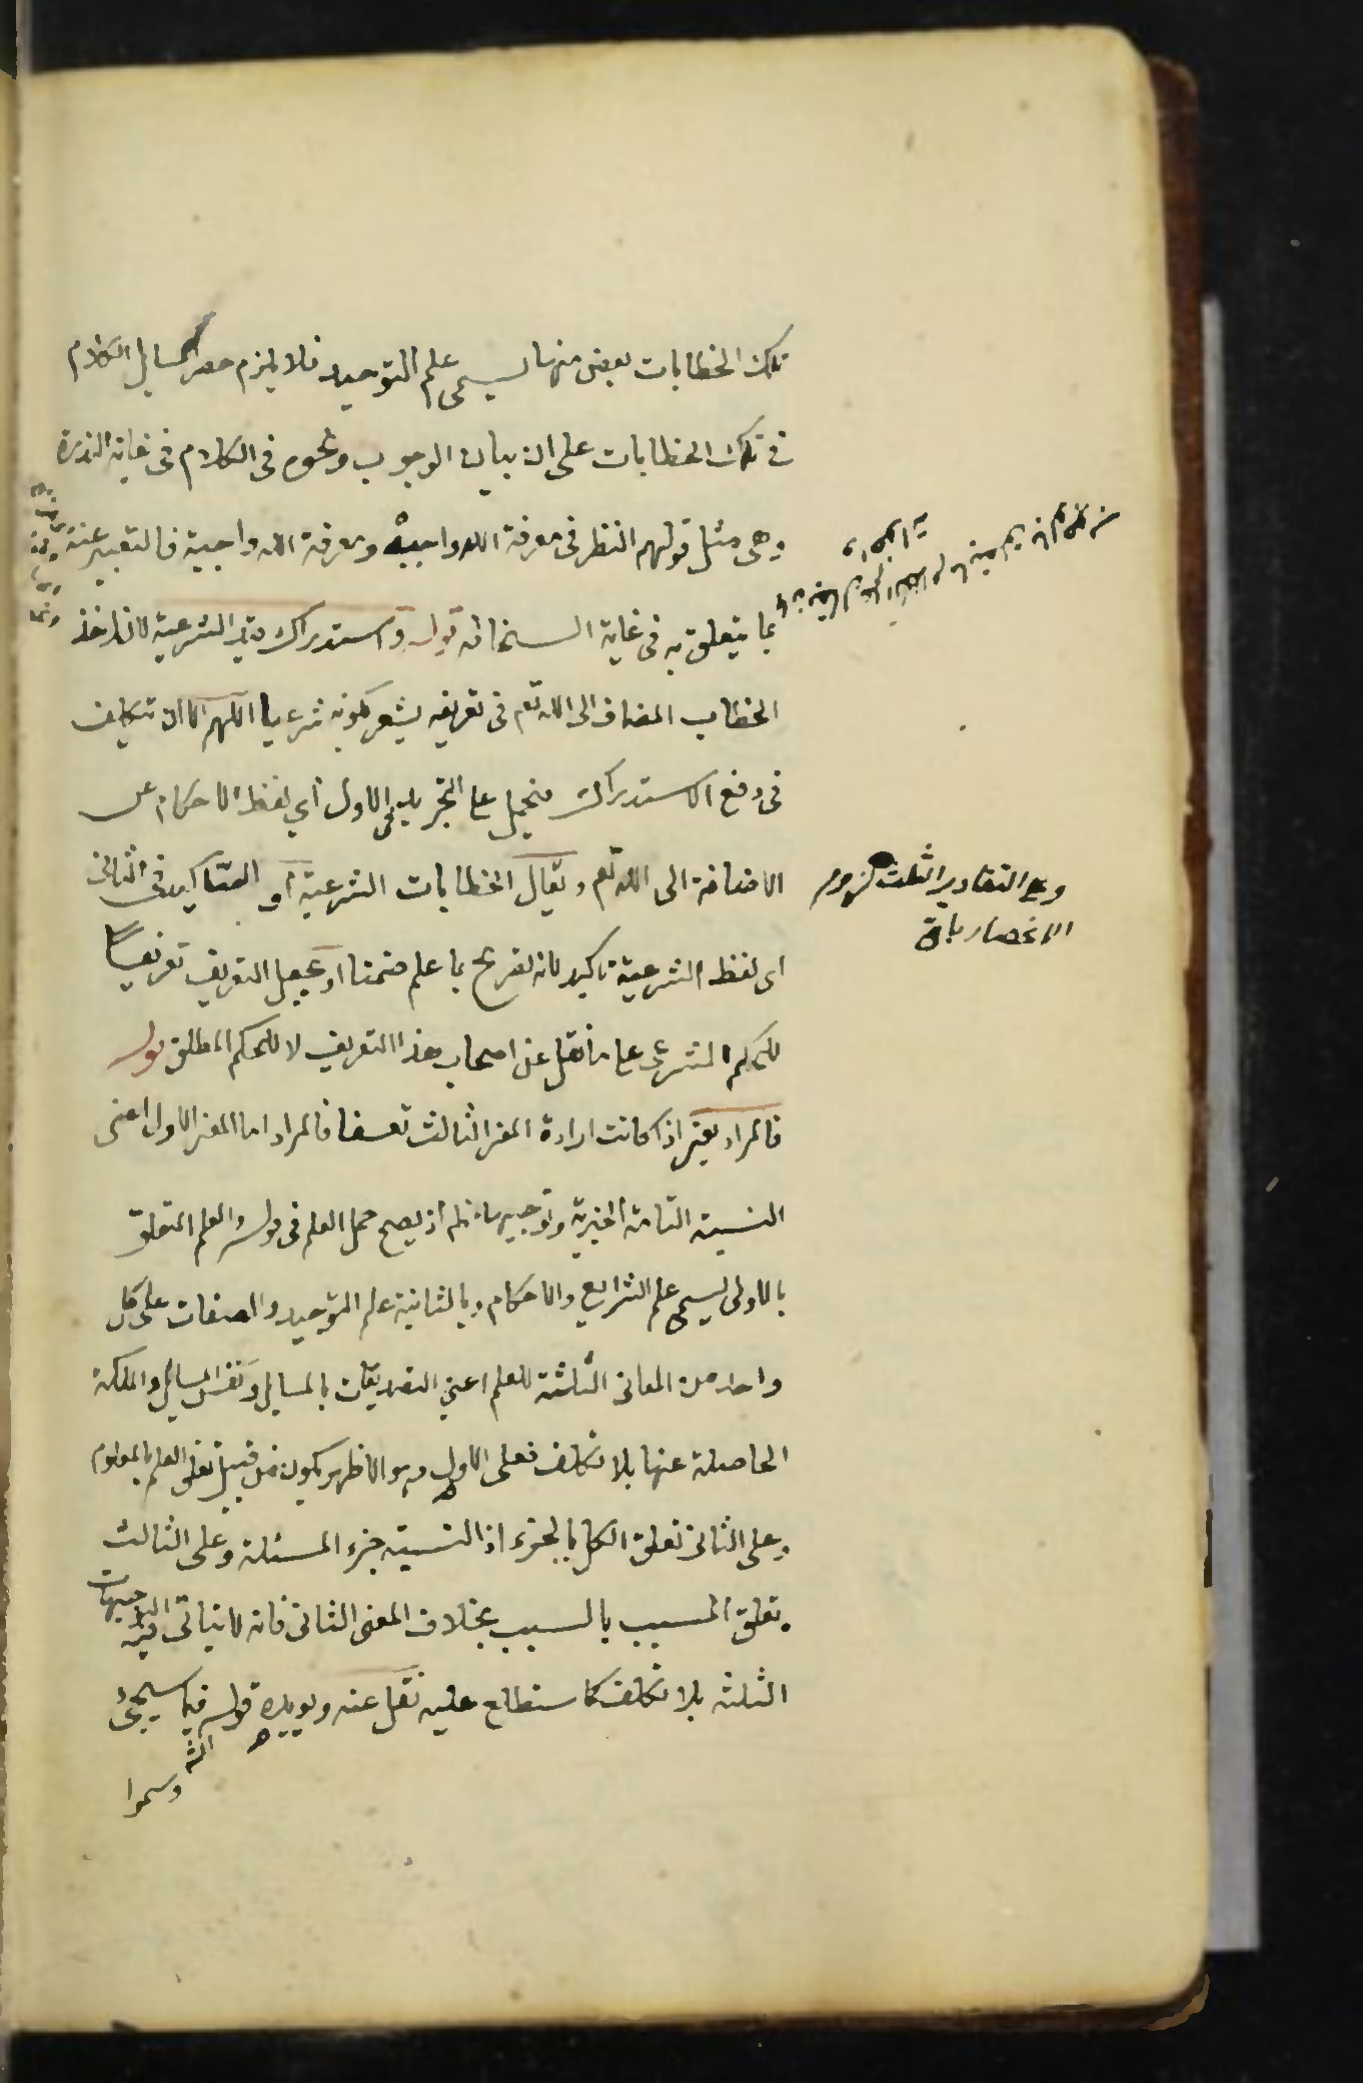 تلك الخطابات بعض منها يسمى علم التوحيد فلا يلزم حصر مسايل الكلام
في تلك الخطابات على ان بيان الوجوب ونحوه في الكلام في غاية الندرة
وهى مثل قولهم النظر في معرفة الله واجبة ومعرفة الله واجبة فالتعبير عنه
بما يتعلق به في غاية السخافة قوله واستدراك قيد الشرعية لان اخذ
الخطاب المضاف الى الله تع في تعريفه يشعر بكونه شرعيا اللهم الا ان تكلف
في دفع الاستدراك فيحمل على التجريد في الاول اي لفظ الاحكام عن
الاضافة الى الله تع ويقال الخطابات الشرعية او التاكيد في الثاني
اى لفظ الشرعية تاكيد لانه تصريح بما علم ضمنا او يجعل التعريف تعريفا
للحكم الشرعى على ما نقل عن اصحاب هذا التعريف لا للحكم المطلق قوله
فالمراد يعني اذا كانت ارادة المعنى الثالث تعسفا فالمراد اما المعنى الاول اعنى
النسبة التامة الخبرية وتوجيهه اذ يصح حمل العلم في قوله والعلم المتعلق
بالاولى يسمى علم الشرايع والاحكام وبالثانية علم التوحيد والصفات على كل
واحد من المعانى الثلثة للعلم اعني التصديقات بالمسايل ونفس المسايل والملكة
الحاصلة عنها بلا تكلف فعلى الاول وهو الاظهر يكون من قبيل تعلق العلم بالمعلوم
وعلى الثانى تعلق الكل بالجزء اذ النسبة جزء المسئلة وعلى الثالث
تعلق المسبب بالسبب بخلاف المعنى الثانى فانه لا يتاتى فيه التوجيهات
الثلثة بلا تكلف كما ستطلع عليه نقل عنه ويويده قوله فيما سيجئ
وسموا
وعلى التقادير الثلث لزوم
الانحصار باق